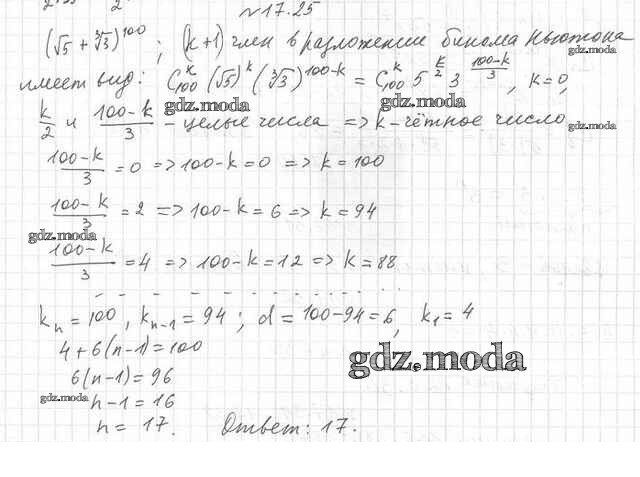 №17.25
(√5 + ∛3)^100 ; (k+1) член в разложении бинома Ньютона
gdz.moda
имеет вид: C_100^k (√5)^k (∛3)^(100-k) = C_100^k 5^(k/2) 3^((100-k)/3) , k=0,
gdz.moda
k/2 и (100-k)/3 - целые числа => k - чётное число
gdz.moda
(100-k)/3 = 0 => 100-k=0 => k=100
(100-k)/3 = 2 => 100-k=6 => k=94
gdz.moda
(100-k)/3 = 4 => 100-k=12 => k=88
k_n = 100, k_(n-1) = 94; d = 100-94=6, k_1 = 4
4+6(n-1)=100
gdz.moda
6(n-1)=96
gdz.moda
n-1=16
n= 17. Ответ: 17.